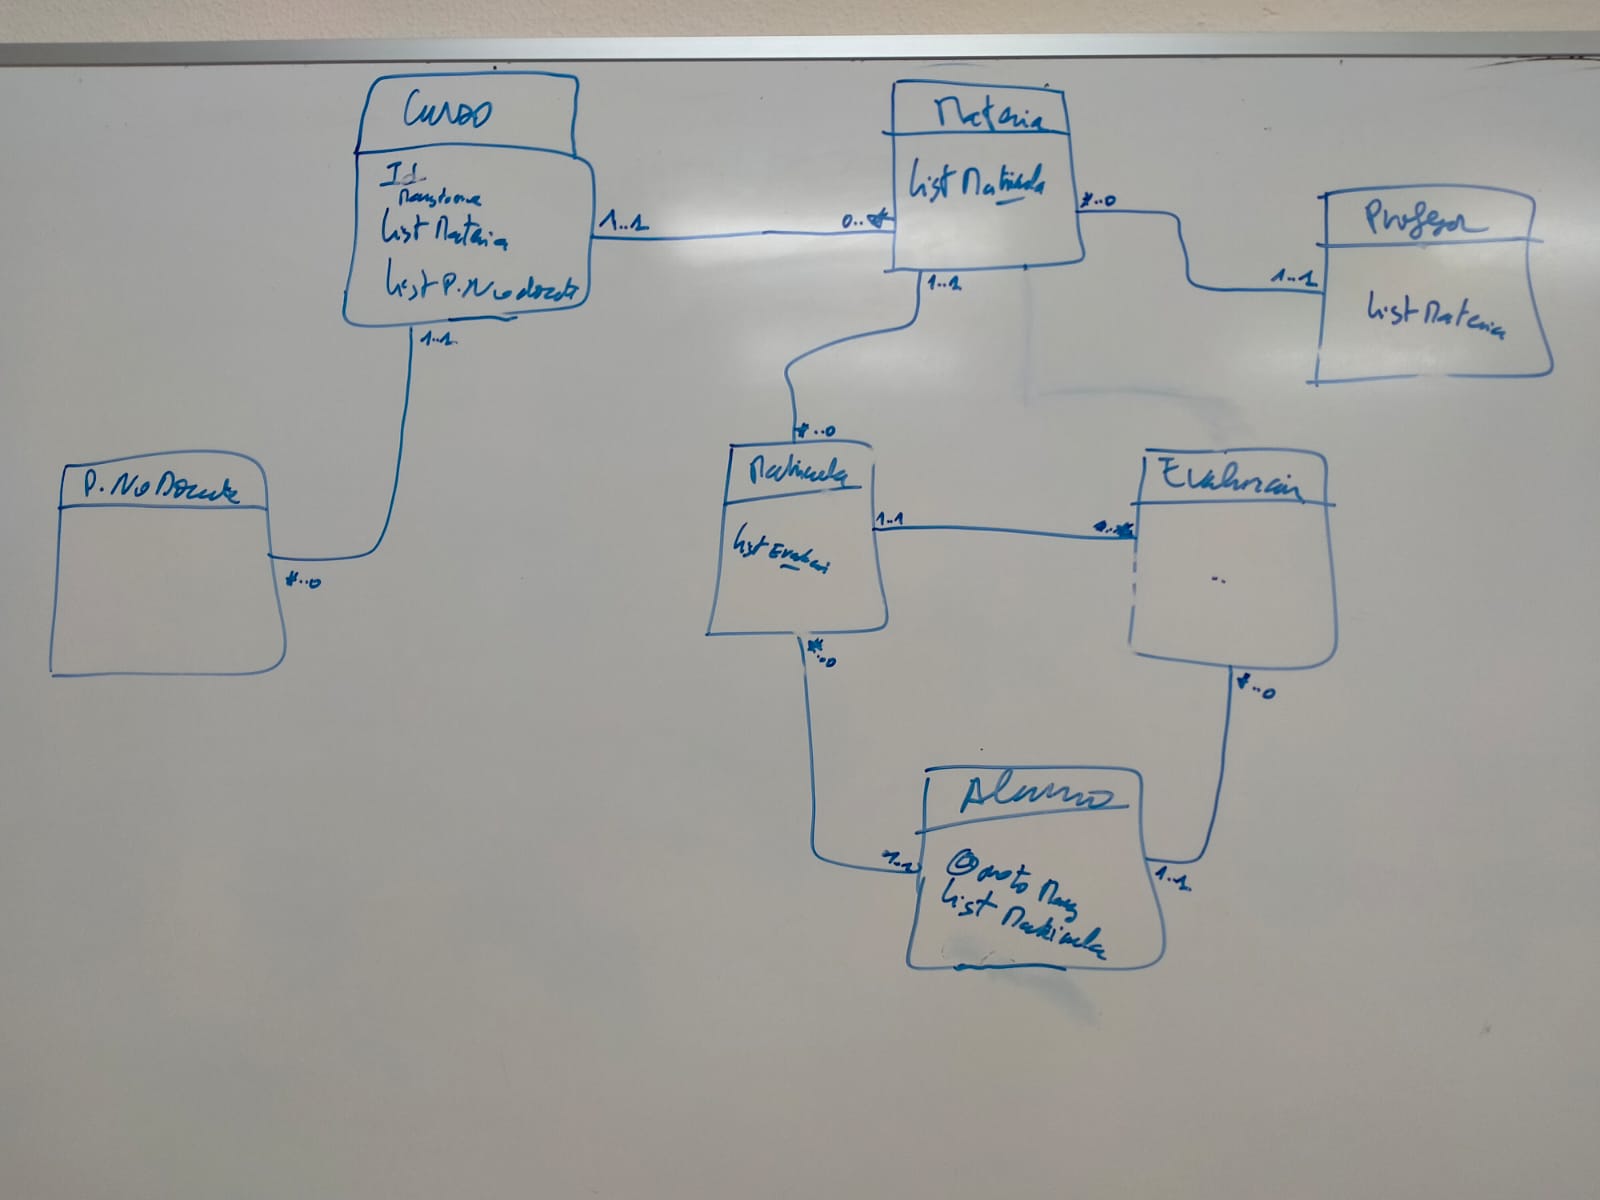 Curso
Id
List Materia
List P.No docente
1..1
0..*
1..1
Materia
List Matricula
*..0
1..1
1..1
Profesor
List Materia
P. No Docente
*..0
*..0
Matricula
List Evaluaci
1..1
*..0
Evaluacion
..
*..0
Alumno
List Matricula
1..1
1..1